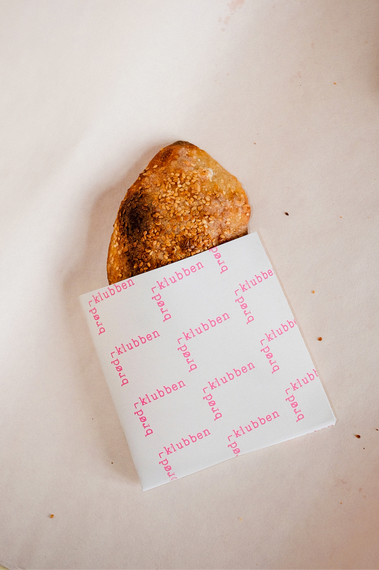 brød-klubben
brød-klubben
brød-klubbe
brød-klubben
brød-klubben
brød-klubb
brød-klubben
brød-klubben
brød-klubb
brød-klubben
brød-klubben